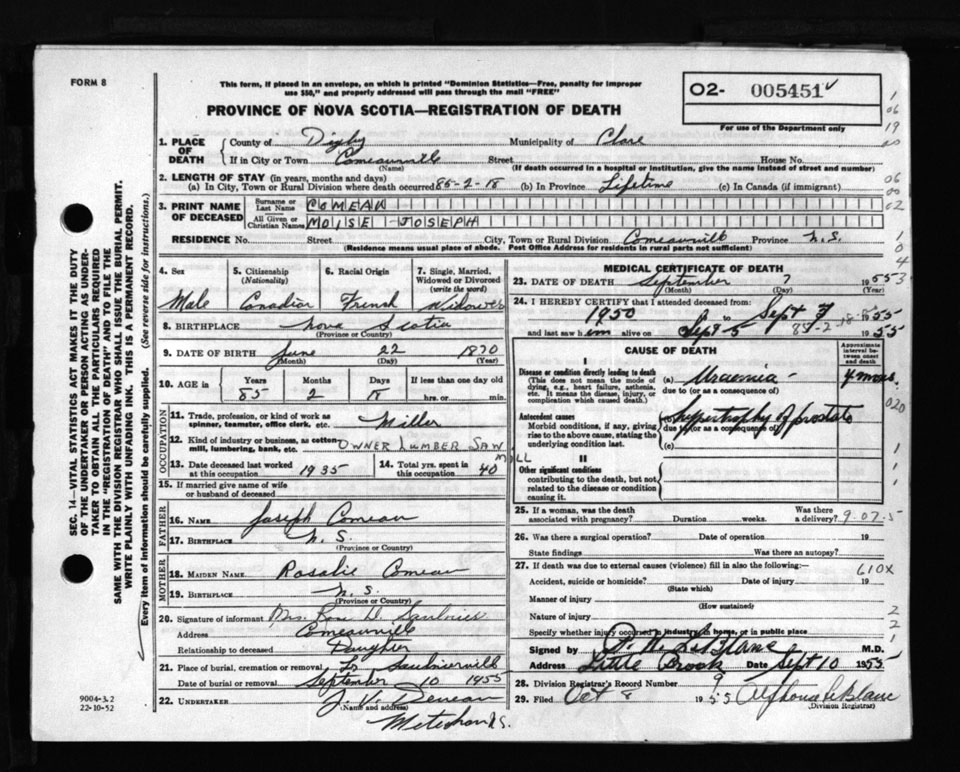 FORM 8
This form, if placed in an envelope, on which is printed "Dominion Statistics—Free, penalty for improper
use $50," and properly addressed will pass through the mail "FREE"
PROVINCE OF NOVA SCOTIA—REGISTRATION OF DEATH
O2- 005451
For use of the Department only
1. PLACE OF DEATH
County of Digby Municipality of Clare
If in City or Town Comeauville Street House No.
(Name) (If death occurred in a hospital or institution, give the name instead of street and number)
2. LENGTH OF STAY (in years, months and days)
(a) In City, Town or Rural Division where death occurred 85-2-18 (b) In Province Lifetime (c) In Canada (if immigrant)
3. PRINT NAME OF DECEASED
Surname or Last Name COMEAU
All Given or Christian Names MOISE JOSEPH
RESIDENCE No. Street City, Town or Rural Division Comeauville Province N.S.
(Residence means usual place of abode. Post Office Address for residents in rural parts not sufficient)
4. Sex Male
5. Citizenship (Nationality) Canadian
6. Racial Origin French
7. Single, Married, Widowed or Divorced (write the word) Widowed
8. BIRTHPLACE Nova Scotia
(Province or Country)
9. DATE OF BIRTH June 22 1870
(Month) (Day) (Year)
10. AGE in Years 85 Months 2 Days 18 If less than one day old hrs. or min.
OCCUPATION
11. Trade, profession, or kind of work as spinner, teamster, office clerk, etc. Miller
12. Kind of industry or business, as cotton mill, lumbering, bank, etc. OWNER LUMBER SAW MILL
13. Date deceased last worked at this occupation 1935
14. Total yrs. spent in this occupation 40
15. If married give name of wife or husband of deceased
FATHER
16. NAME Joseph Comeau
17. BIRTHPLACE N.S.
(Province or Country)
MOTHER
18. MAIDEN NAME Rosalie Comeau
19. BIRTHPLACE N.S.
(Province or Country)
20. Signature of informant Mrs. Rose D. Saulnier
Address Comeauville
Relationship to deceased Daughter
21. Place of burial, cremation or removal Saulnierville
Date of burial or removal September 10 1955
22. UNDERTAKER J. V.
(Name and address)
Meteghan N.S.
MEDICAL CERTIFICATE OF DEATH
23. DATE OF DEATH September 7 1955
(Month) (Day) (Year)
24. I HEREBY CERTIFY that I attended deceased from:
1950 to Sept 7 1955
and last saw him alive on Sept-5 1955
85-2-18
CAUSE OF DEATH
Approximate interval between onset and death
I
Disease or condition directly leading to death
(This does not mean the mode of dying, e.g., heart failure, asthenia, etc. It means the disease, injury, or complication which caused death.)
(a) Uraemia 4 mons.
due to (or as a consequence of)
Antecedent causes
Morbid conditions, if any, giving rise to the above cause, stating the underlying condition last.
(b) Hypertrophy of prostate
due to (or as a consequence of)
(c)
II
Other significant conditions
contributing to the death, but not related to the disease or condition causing it.
25. If a woman, was the death associated with pregnancy? Duration weeks. Was there a delivery? 9.07.5
26. Was there a surgical operation? Date of operation 19
State findings Was there an autopsy?
27. If death was due to external causes (violence) fill in also the following:—
610X
Accident, suicide or homicide? Date of injury 19
(State which)
Manner of injury
(How sustained)
Nature of injury
Specify whether injury occurred in industry, in home, or in public place
Signed by LeBlanc M.D.
Address Little Brook Date Sept 10 1955
28. Division Registrar's Record Number 9
29. Filed Oct 8 1955 Alphonse LeBlanc
(Division Registrar)
SEC. 14—VITAL STATISTICS ACT MAKES IT THE DUTY
OF THE UNDERTAKER OR PERSON ACTING AS UNDER-
TAKER TO OBTAIN ALL THE PARTICULARS REQUIRED
IN THE "REGISTRATION OF DEATH" AND TO FILE THE
SAME WITH THE DIVISION REGISTRAR WHO SHALL ISSUE THE BURIAL PERMIT.
WRITE PLAINLY WITH UNFADING INK. THIS IS A PERMANENT RECORD.
Every item of information should be carefully supplied. (See reverse side for instructions.)
9004-3.2
22-10-52
1
06
19
00
06
00
02
1
0
4
3
020
1
1
1
2
2
1